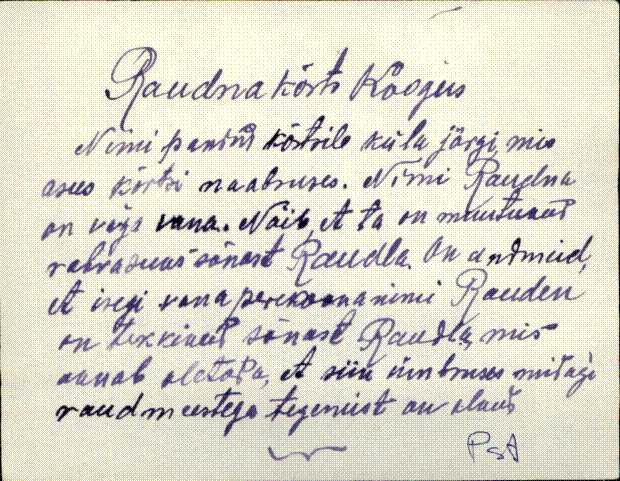 Raudna kõrts Koogus
Nimi pandud kõrtsile küla järgi, mis
asus kõrtsi naabruses. Nimi Raudna
on väga vana. Näib, et ta on muutunud
rahvasuus sõnast Raudla. On andmeid,
et isegi vana perekonnanimi Rauden
on tekkinud sõnast Raudla, mis
annab oletada, et siin ümbruses midagi
raudmeestega tegemist on olnud
Pst